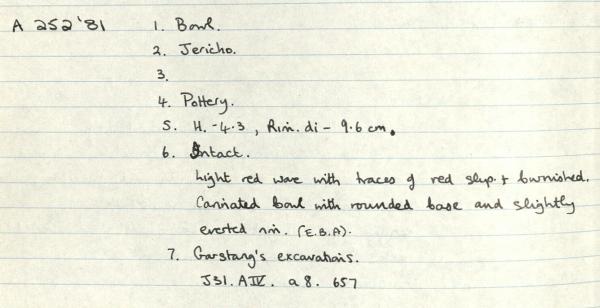 A 252'81 1. Bowl.
2. Jericho.
3.
4. Pottery.
5. H. - 4.3, Rim. di - 9.6 cm.
6. Intact.
Light red ware with traces of red slip. + burnished.
Carinated bowl with rounded base and slightly
everted rim. (E.B.A).
7. Garstang's excavations.
J31. A IV. a 8. 657